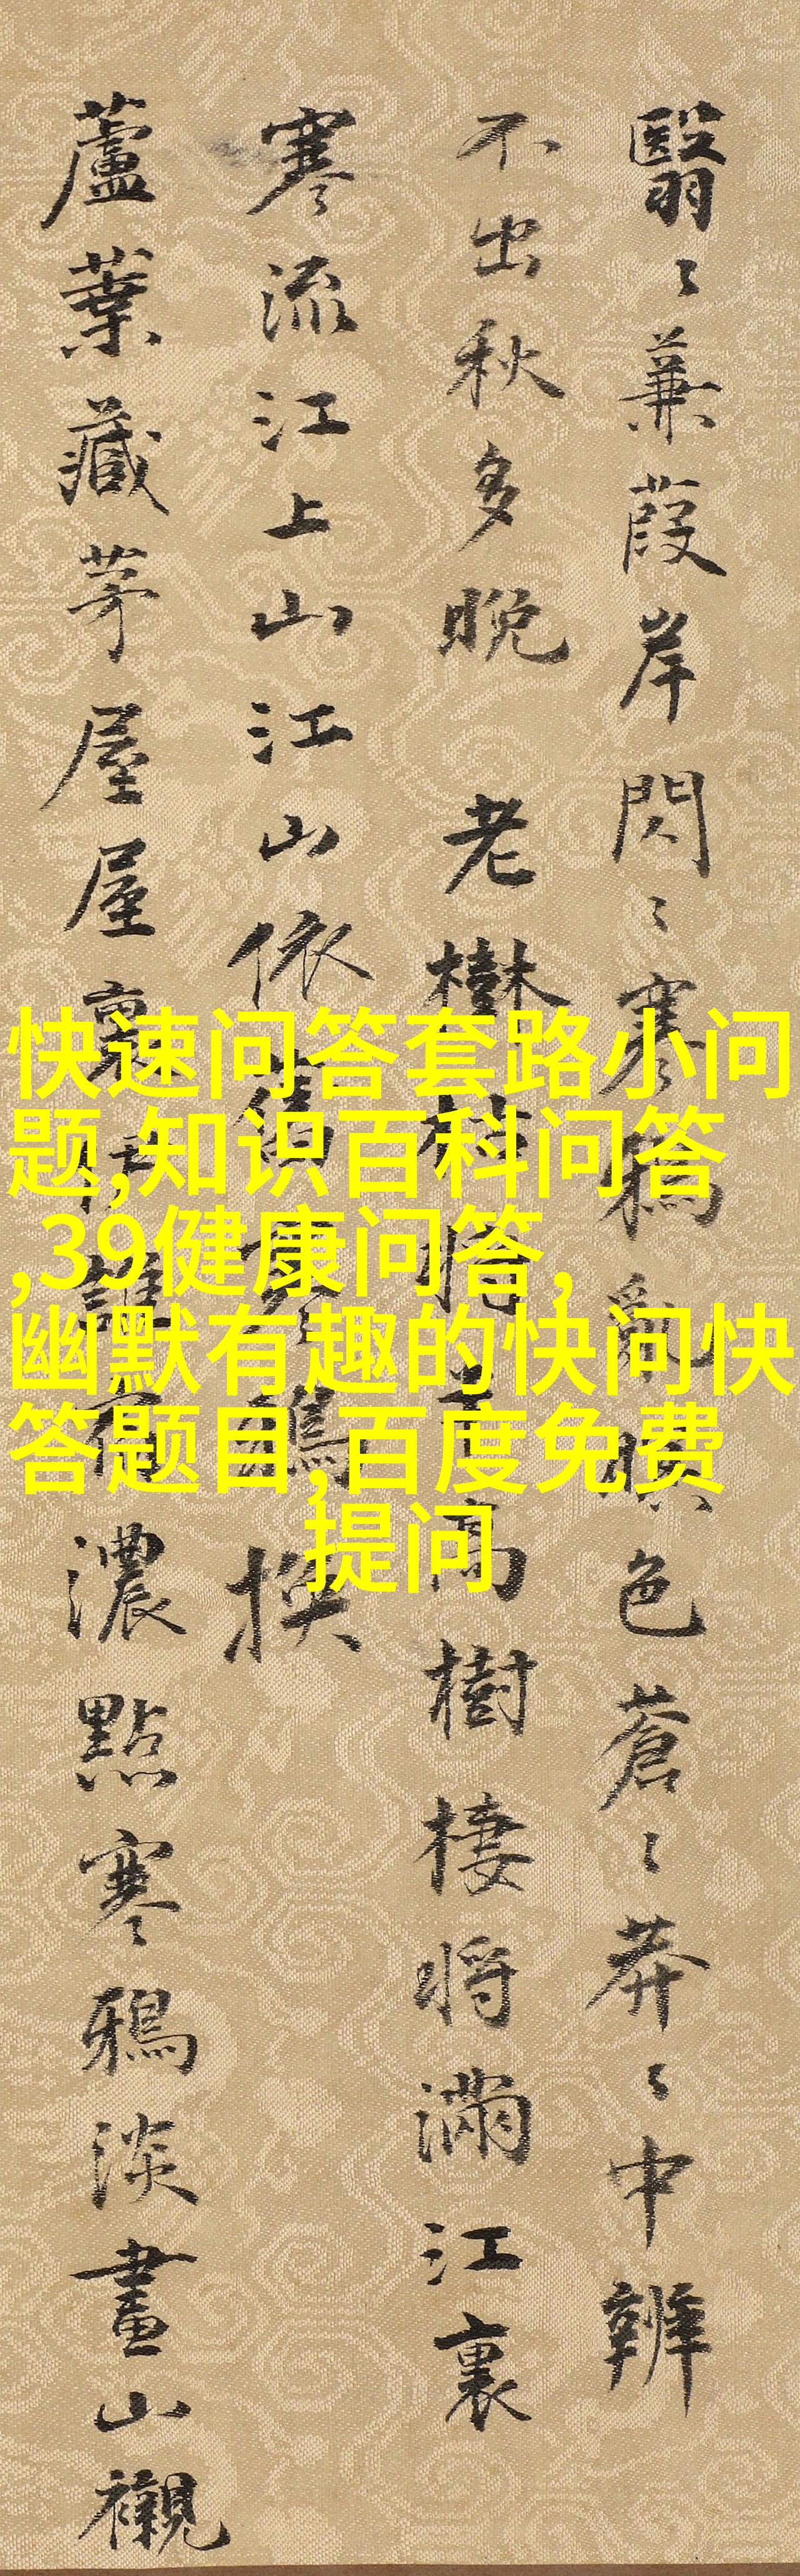 翳〻蒹葭岸閃〻寒鴉亂暝色蒼〻莽〻中辨
不出秋多晚 老樹枯將高樹棲將滿江裏
寒流江上山江山依舊撰
蘆葉藏茅屋屋裏誰濃點寒鴉淡畫山襯
快速问答套路小问
题,知识百科问答
,39健康问答,
幽默有趣的快问快
答题目,百度免费
提问